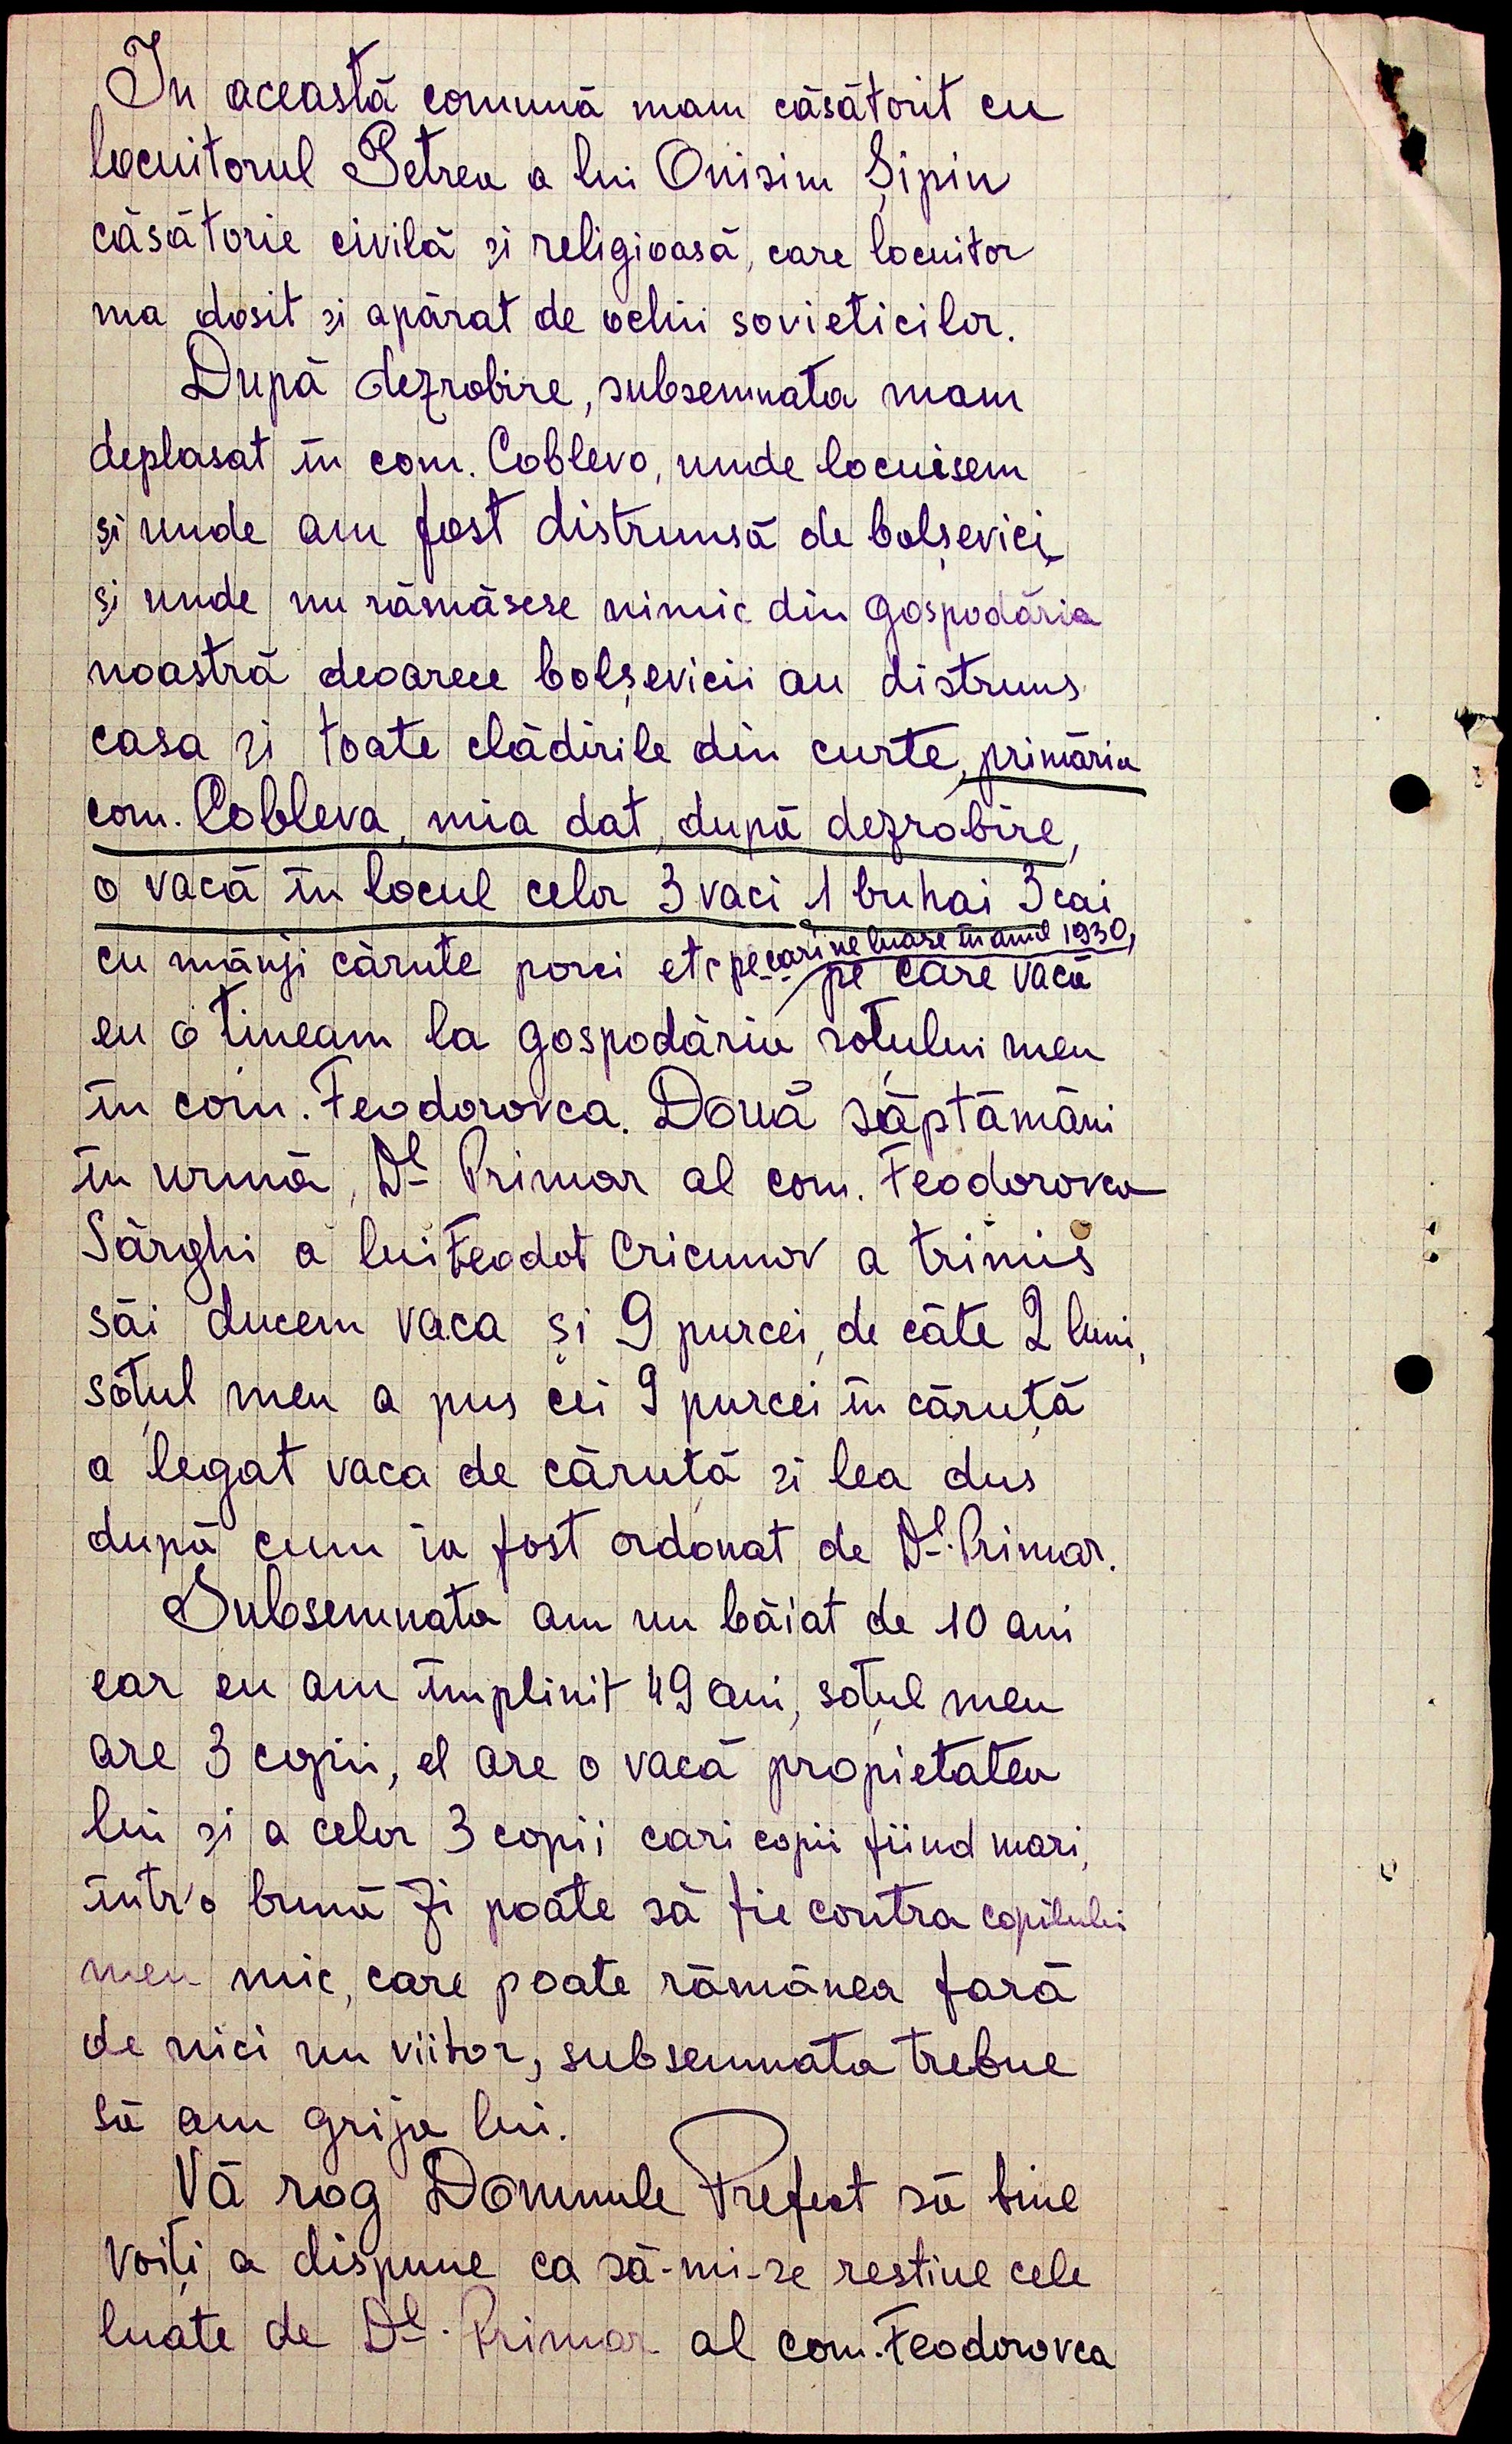 In această comună mam căsătorit cu
locuitorul Petrea a lui Onisim Șipin
căsătorie civilă și religioasă, care locuitor
ma dosit și apărat de ochii sovieticilor.
După dezrobire, subsemnata mam
deplasat în com. Coblevo, unde locuisem
și unde am fost distrunsă de bolșevici,
și unde nu rămăsese nimic din gospodăria
noastră deoarece bolșevicii au distruns
casa și toate clădirile din curte, primăria
com. Cobleva, mia dat, după dezrobire,
o vacă în locul celor 3 vaci 1 buhai 3 cai
cari ne luase în anul 1930,
cu mânji cărute porci etc pe pe care vacă
eu o țineam la gospodăria soțului meu
în com. Feodorovca. Două săptămâni
în urmă, Dl Primar al com. Feodorovca
Sârghi a lui Feodot Cricunov a trimis
săi ducem vaca și 9 purcei, de câte 2 luni,
soțul meu a pus cei 9 purcei în căruță
a legat vaca de căruță și lea dus
după cum ia fost ordonat de Dl. Primar.
Subsemnata am un băiat de 10 ani
ear eu am împlinit 49 ani, soțul meu
are 3 copii, el are o vacă propietatea
lui și a celor 3 copii cari copii fiind mari,
într'o bună zi poate să fie contra copilului
meu mic, care poate rămânea fară
de nici un viitor, subsemnata trebue
să am grija lui.
Vă rog Domnule Prefect să bine
voiți a dispune ca să-mi-se restiue cele
luate de Dl. Primar al com. Feodorovca